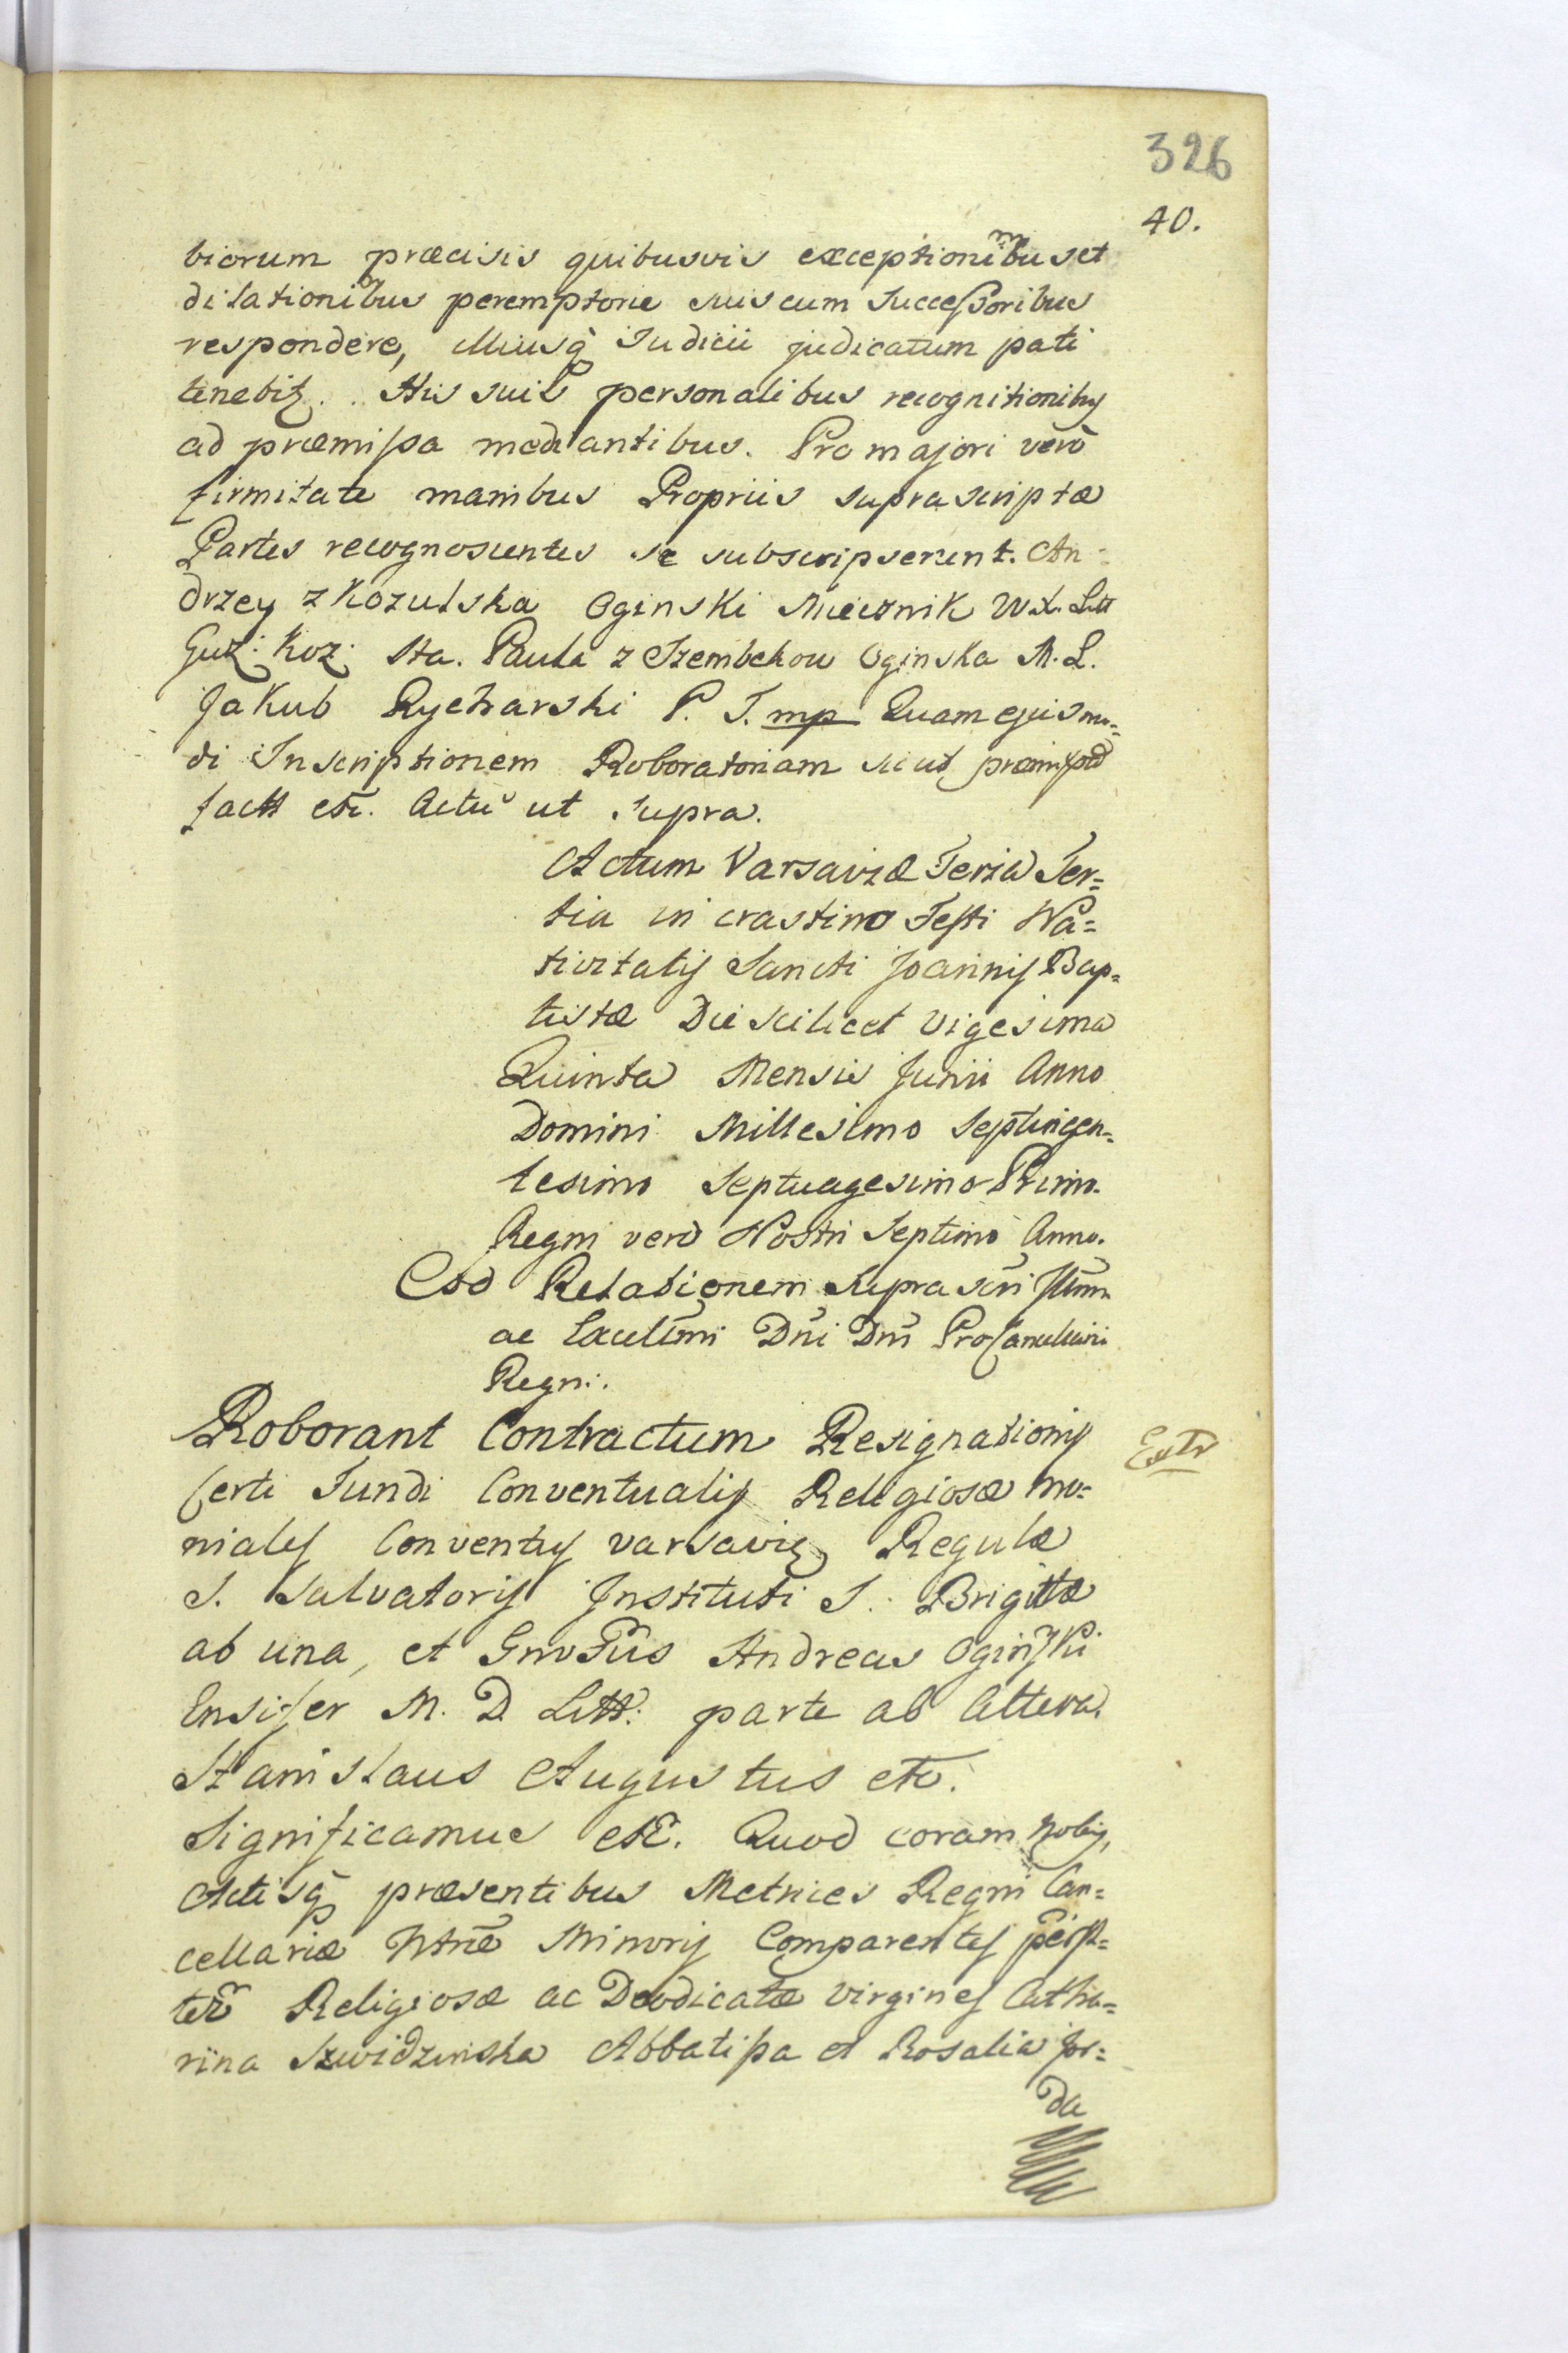 326
40.
biorum præcisis quibusvis exceptionibus et
dilationibus peremptorie suis cum Successoribus
respondere, illiusq̃ Iudicii judicatum pati
tenebit. His suis personalibus recognitionibus
ad præmissa mediantibus. Pro majori verò
firmitate manibus Propriis suprascriptæ
Partes recognoscentes se subscripserunt. An=
drzey z Kozulska Oginski Miecznik W. X. Litt
Guz: Koz: Sta. Paula z Szembekow Oginska M. L.
Jakub Rycharski P. J. mp Quam ejusmo=
di Inscriptionem Roboratoriam sicut præmissod
fact etc. Actũ ut supra.
Actum Varsaviæ Feria Ter=
tia in crastino Festi Na=
tivitatis Sancti Joannis Bap=
tistæ Die scilicet Vigesima
Quinta Mensis Junii Anno
Domini Millesimo Septingen=
tesimo Septuagesimo Primo.
Regni vero Nostri Septimo Anno.
Ead Relationem supra scri
ac Excellmi Dñi Dñi ProCancellarii
Regni.
Roborant Contractum Resignationis
Certi Fundi Conventualis Religiosæ mo=
niales Conventus varsavien Regulæ
S. Salvatoris Instituti S. Brigittæ
ab una, et Gnosus Andreas Oginski
Ensifer M. D. Litt: parte ab altera.
Extr
Stanislaus Augustus etc.
Significamus etc. Quod coram Nobis,
Actisq̃ præsentibus Metrices Regni Can=
cellariæ Ntræ Minoris Comparentes perso=
ter Religiosæ ac Deodicatæ Virgines Catha=
rina Szwidzinska Abbatissa et Rosalia Jor=
da